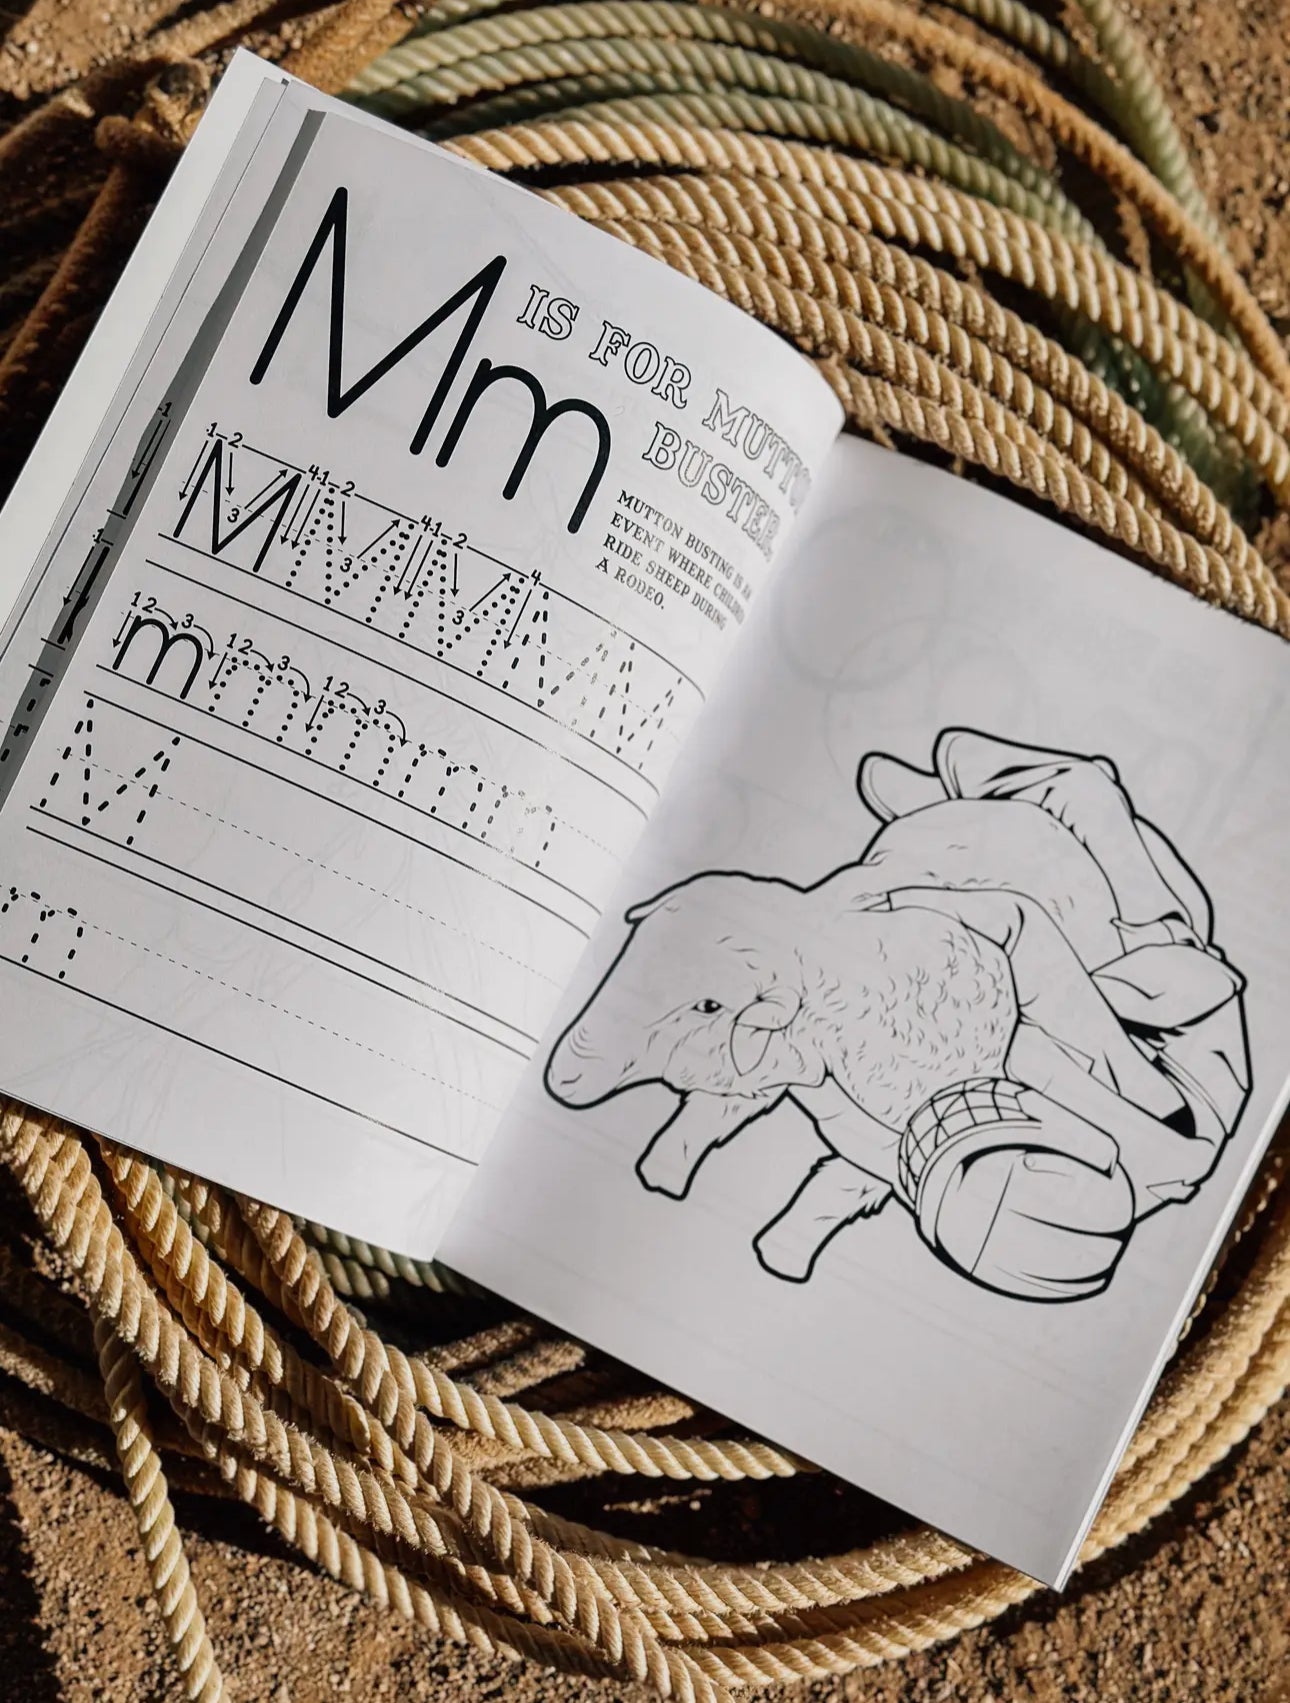 Mm
IS FOR MUTTON
BUSTER
MUTTON BUSTING IS AN
EVENT WHERE CHILDREN
RIDE SHEEP DURING
A RODEO.
1 2 3 4 1 2 3 4 1 2 3 4
M M M M M
1 2 3 1 2 3 1 2 3
m m m m m
M
m